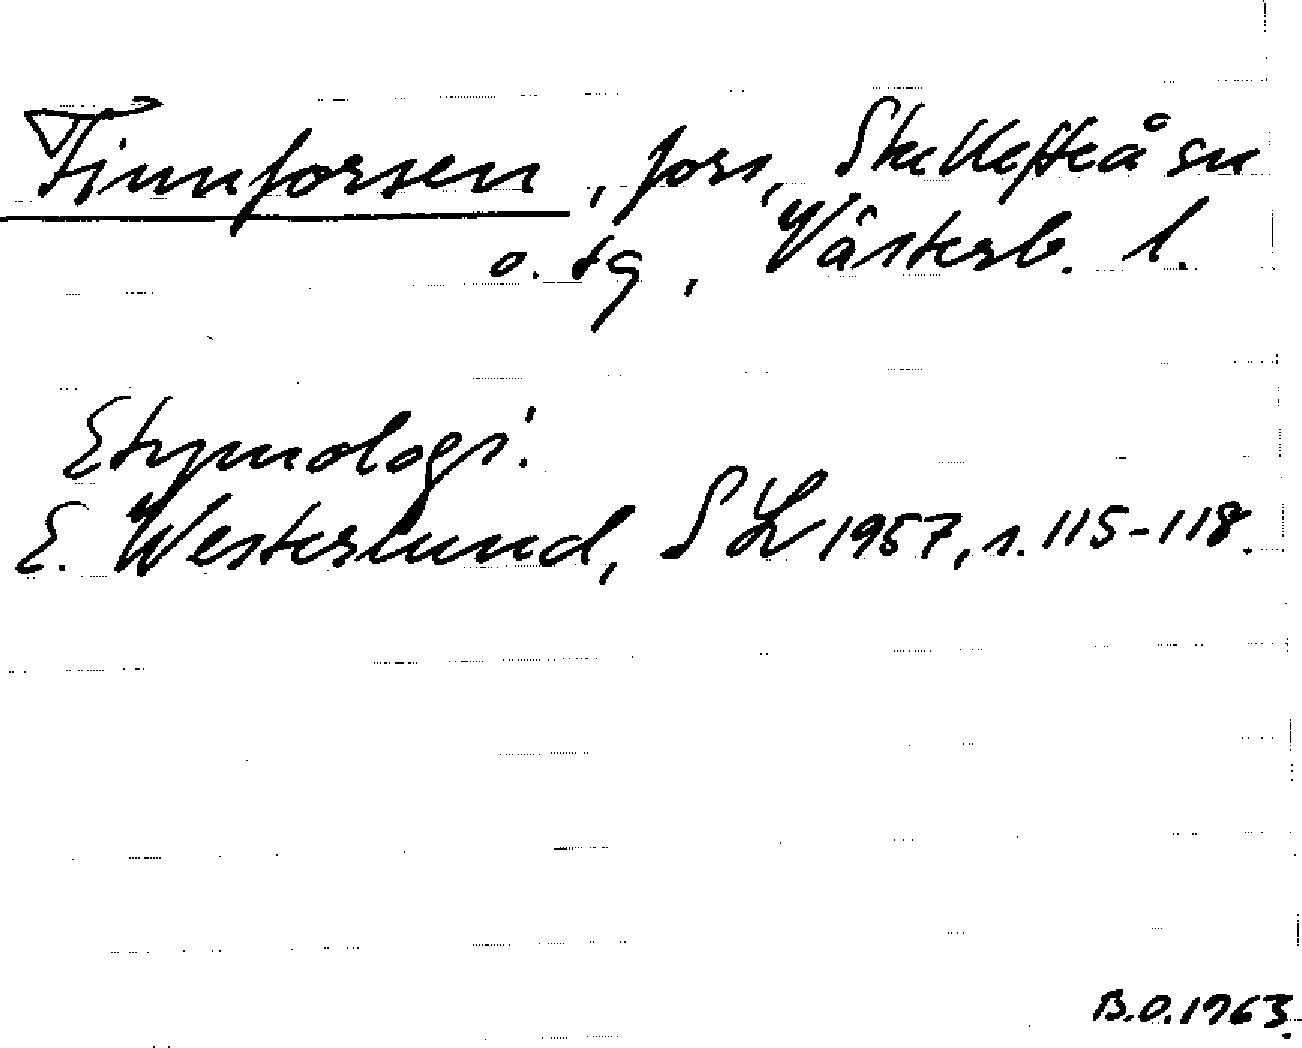 Finnforsen, fors, Skellefteå sn
o. tg, Västerb. l.
Etymologi:
E. Westerlund, SL 1957, s. 115-118.
B.O. 1963.